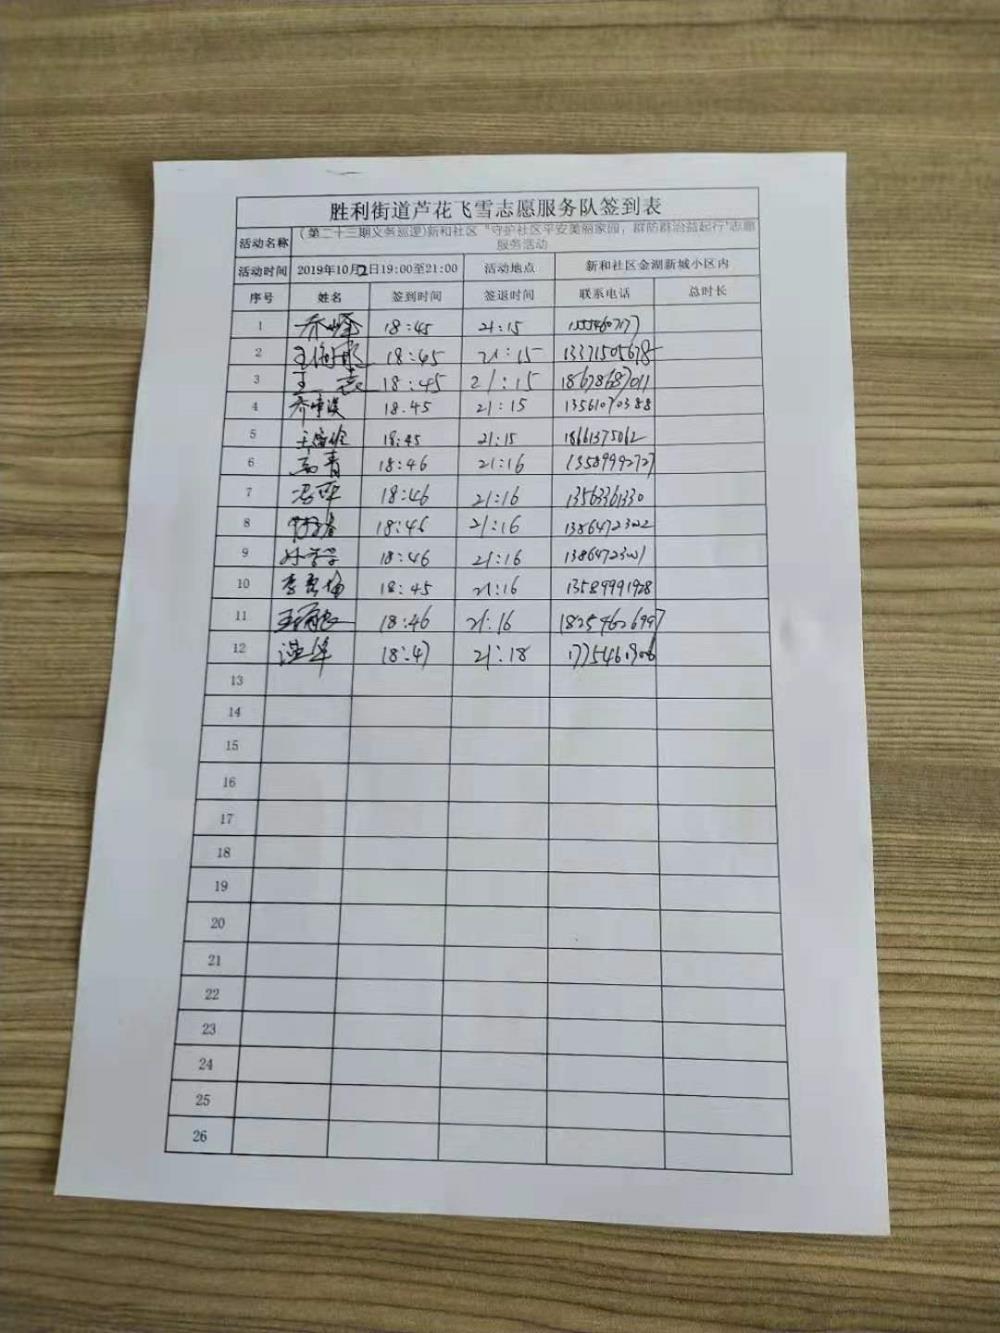 胜利街道芦花飞雪志愿服务队签到表
活动名称 (第二十三期义务巡逻)新和社区“守护社区平安美丽家园，群防群治益起行”志愿
服务活动
活动时间 2019年10月2日19:00至21:00 活动地点 新和社区金湖新城小区内
序号 姓名 签到时间 签退时间 联系电话 总时长
1 乔峰 18:45 21:15
2 18:45 21:15 13371505678
3 18:45 21:15 18678687011
4 18.45 21:15 13561070388
5 18:45 21:15 18661375062
6 高青 18:46 21:16 13589992727
7 18:46 21:16 13563361330
8 18:46 21:16
9 18:46 21:16
10 18:45 21:16 13589991928
11 18:46 21:16 18254626997
12 18:47 21:18
13
14
15
16
17
18
19
20
21
22
23
24
25
26